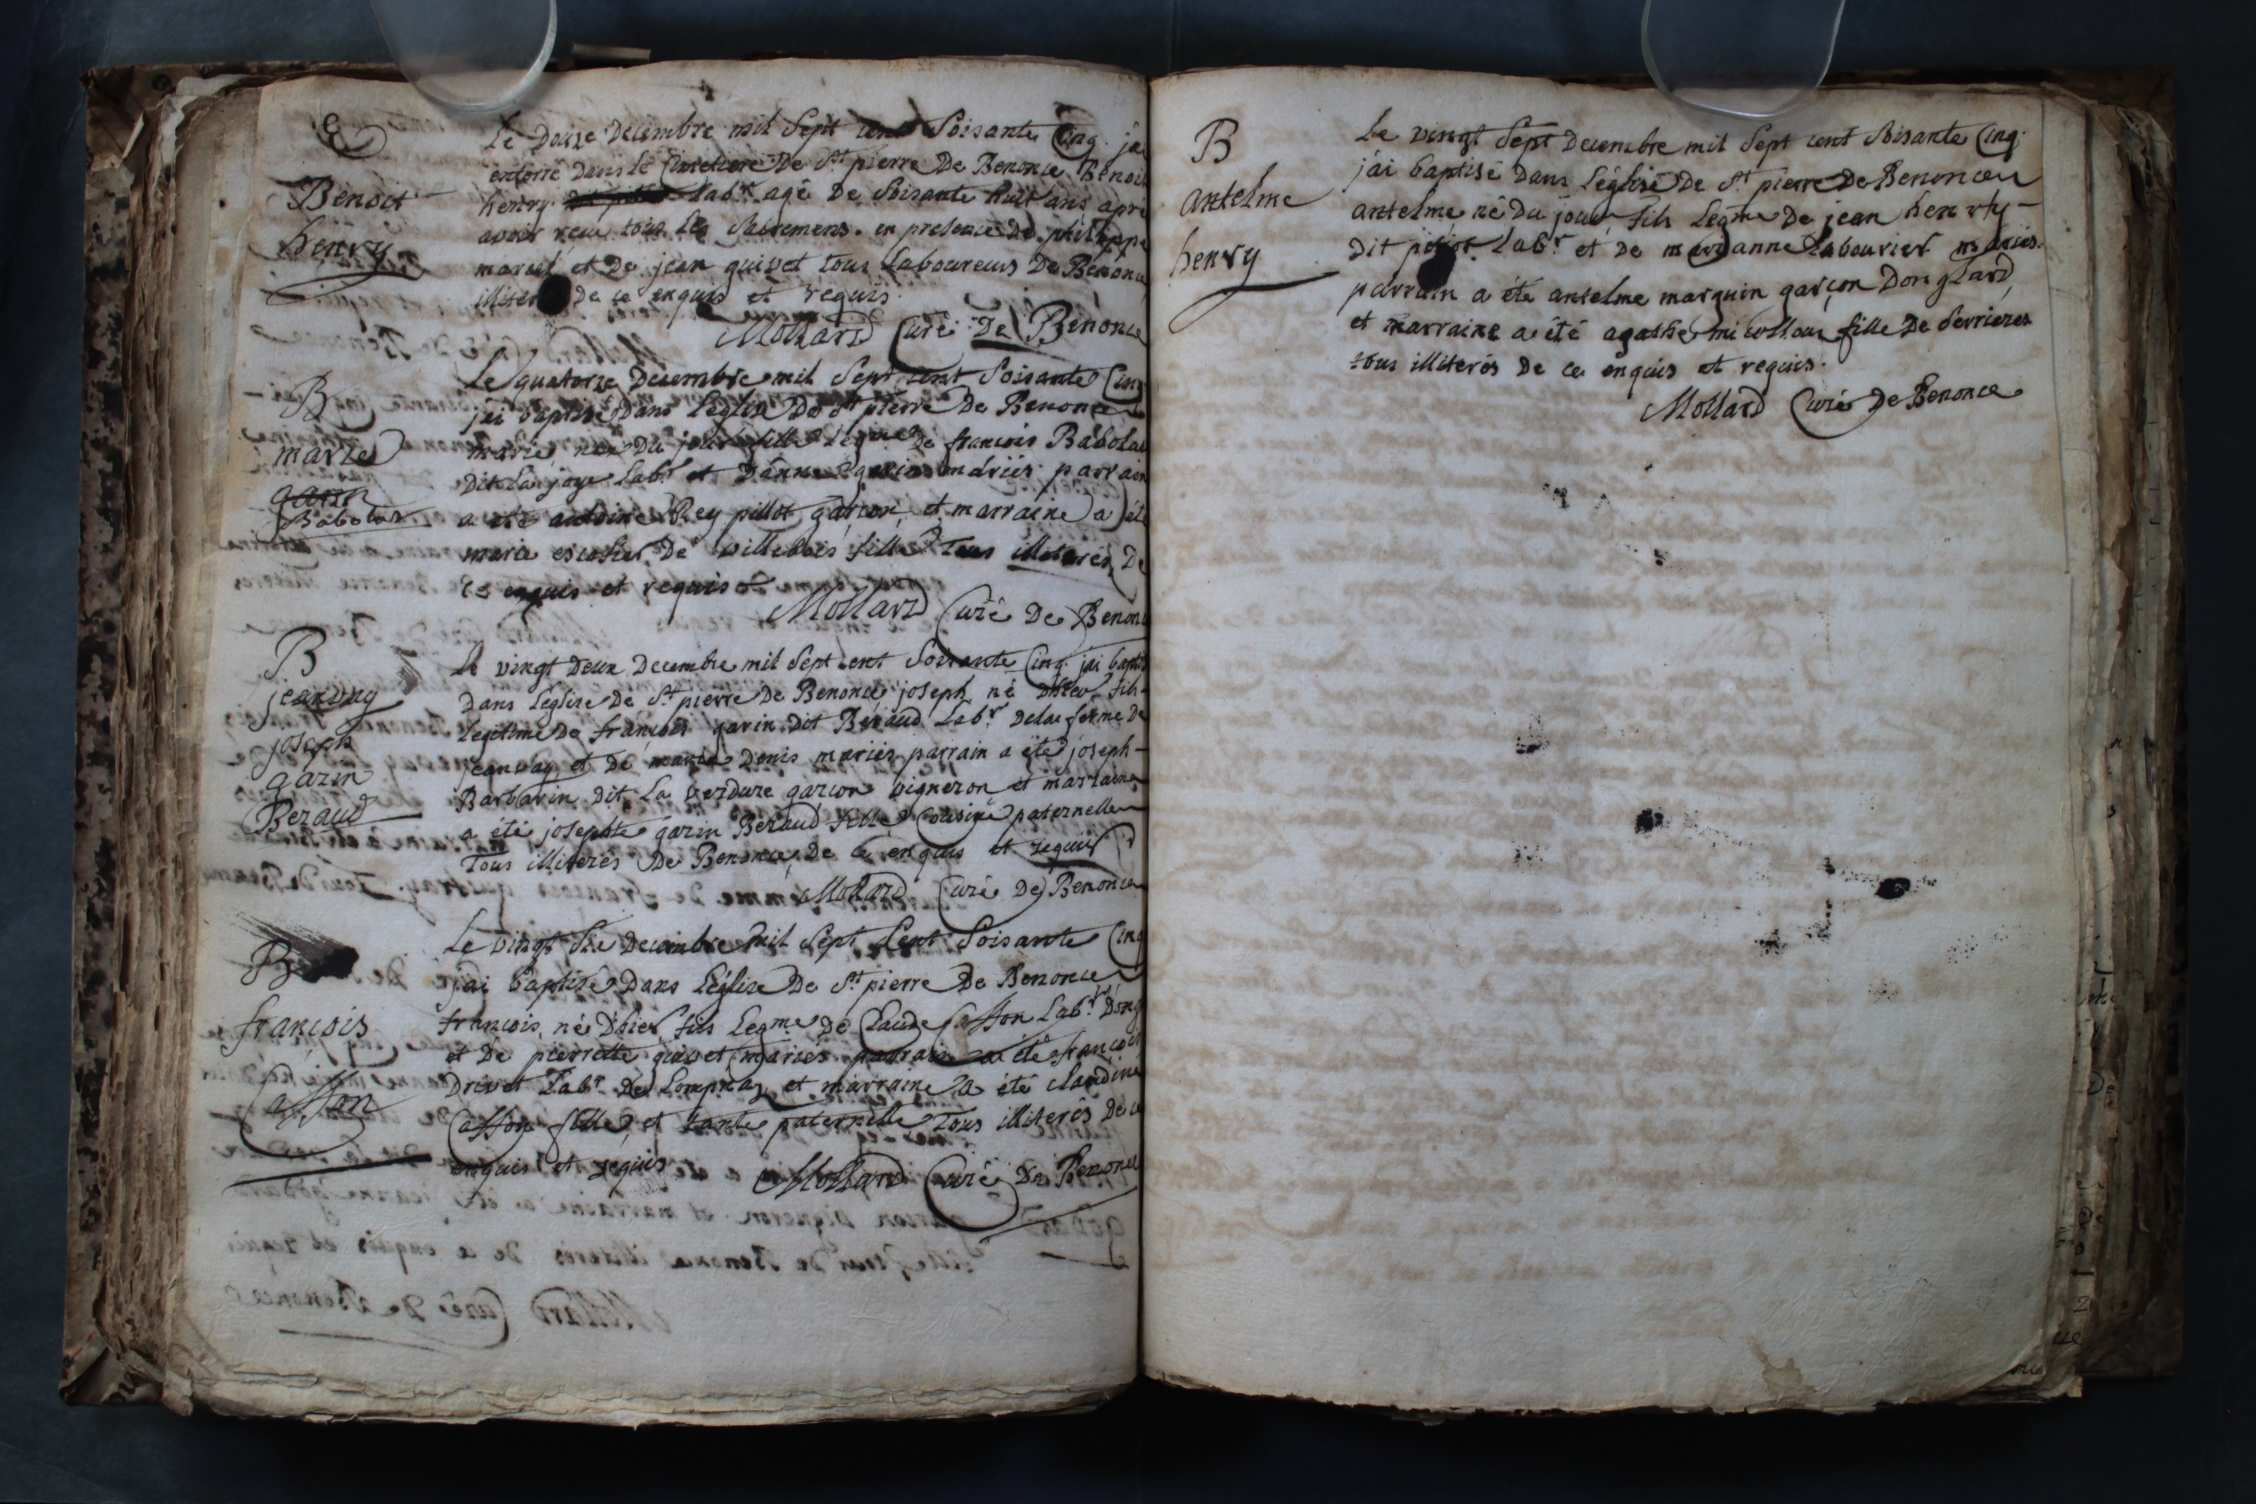 Benoit
henry
Le Douze Decembre mil Sept cent Soisante Cinq. j'ai
enterré dans le Cimetiere De St pierre De Benonce Benoit
henry labr. agé De Soisante huit ans après
avoir recu tous les Sacremens. en presence De philippe
marcel et De jean quivet tous Laboureurs De Benonce
illiterés de ce enquis et requis.
Mollard Curé De Benonce
B
marie
garin
Babolat
Le quatorze Decembre mil Sept cent Soisante Cinq
j'ai baptisé Dans l'eglise De St pierre De Benonce
marie née Du jour fille legme De françois Babolat
Dit la joye Labr. et D'anne garin mariés. parrain
a été antoine Rey pillot garçon, et marraine a été
marie escofier De Villebois fille Tous illiterés De
ce enquis et requis
Mollard Curé De Benonce
B
jeanvay
joseph
garin
Beraud
Le vingt Deux Decembre mil Sept cent Soisante Cinq. j'ai baptisé
Dans l'eglise De St pierre De Benonce joseph né D'hier fils
Legitime De françois garin Dit Beraud Labr. De la ferme De
jeanvay et De marie Denis mariés parrain a été joseph
Barbarin Dit La verdure garçon vigneron et marraine
a été josephte garin Beraud fille Cousine paternelle
Tous illiterés De Benonce, De ce enquis et requis
Mollard Curé De Benonce
B
françois
Casson
Le vingt Six Decembre mil Sept Cent Soisante Cinq
j'ai baptisé Dans L'église De St pierre De Benonce
françois né D'hier fils Legme De Claude Casson Labr.
et De pierrette quivet mariés parrain a été françois
Drivet Labr De Lompnaz et marraine a été claudine
Casson fille, et tante paternelle Tous illiterés De ce
enquis et requis
Mollard Curé De Benonce
B
antelme
henry
Le vingt Sept Decembre mil Sept cent Soisante Cinq.
j'ai baptisé Dans l'église De St pierre De Benonce
antelme né Du jour fils Legme De jean henry
Dit Labr et De marianne Labourier mariés.
parrain a été antelme marquin garçon Donglard,
et marraine a été agathe micolleur fille De Serrieres
tous illiterés De ce enquis et requis.
Mollard Curé De Benonce